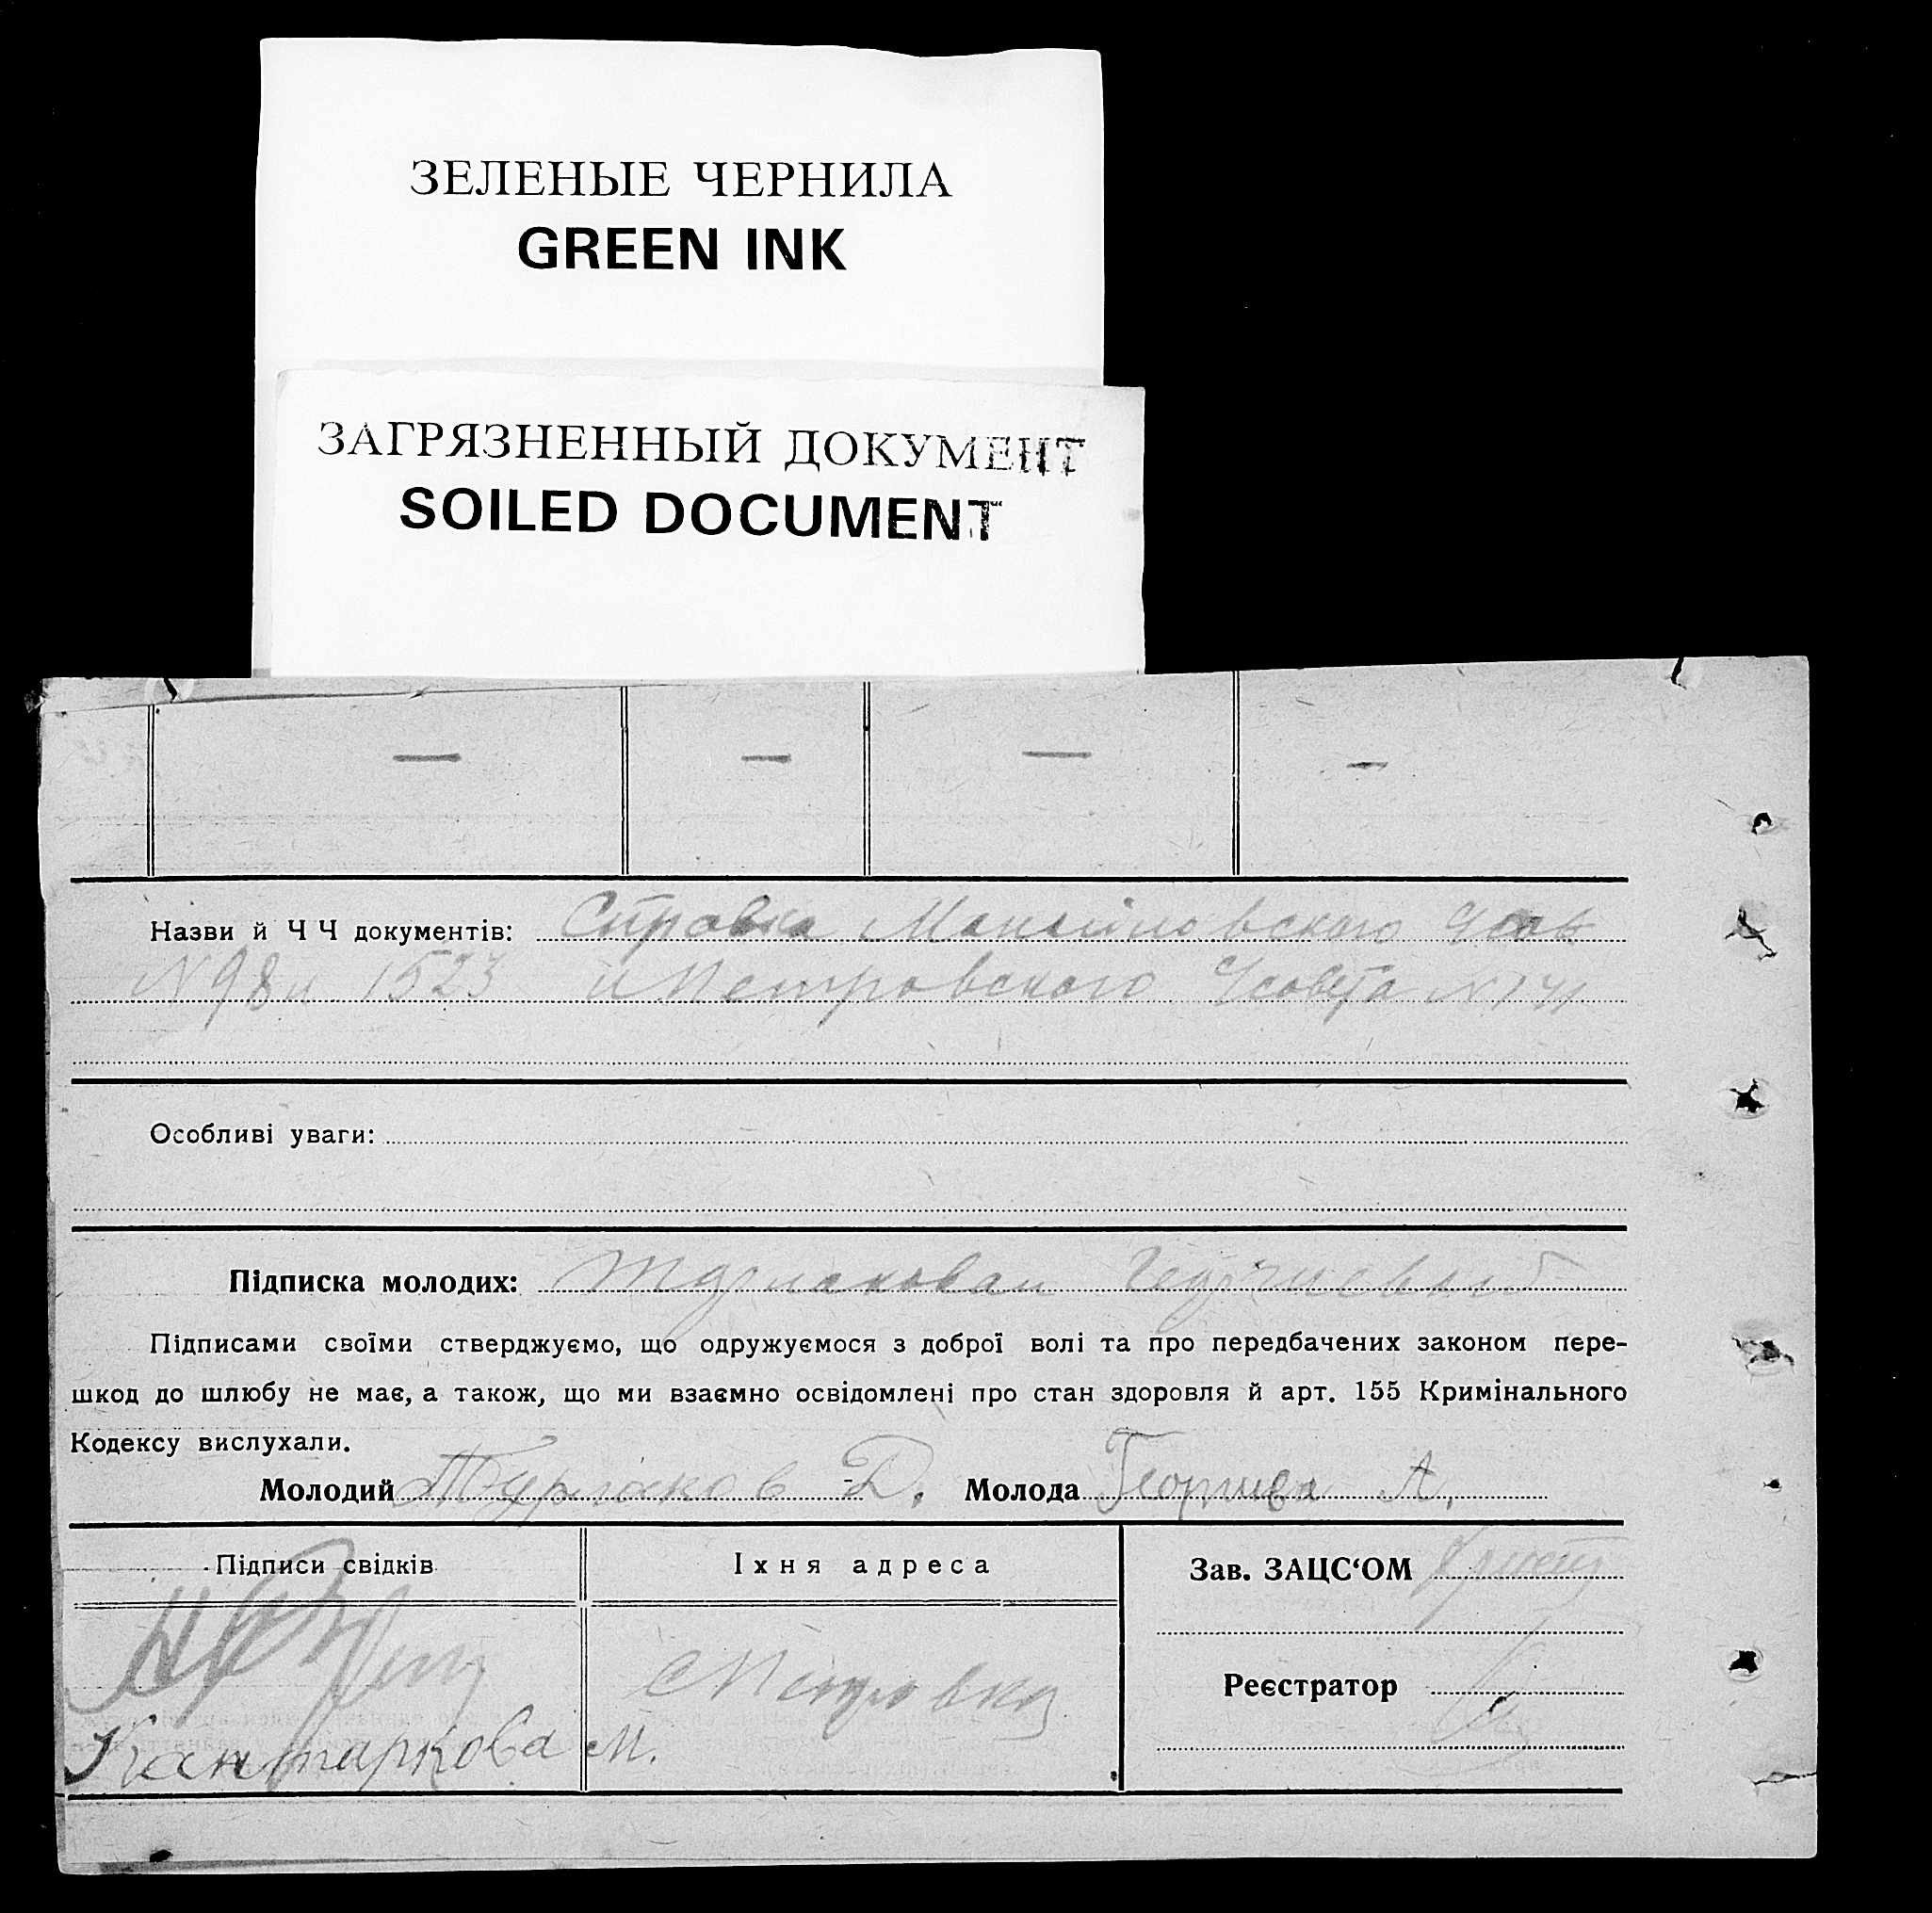 ЗЕЛЕНЫЕ ЧЕРНИЛА
GREEN INK
ЗАГРЯЗНЕННЫЙ ДОКУМЕНТ
SOILED DOCUMENT
— — — —
Назви й Ч Ч документів: Справка
N 98 и 1523 и Петровского N 141
Особливі уваги:
Підписка молодих:
Підписами своїми стверджуємо, що одружуємося з доброї волі та про передбачених законом пере-
шкод до шлюбу не має, а також, що ми взаємно освідомлені про стан здоровля й арт. 155 Кримінального
Кодексу вислухали.
Молодий Турлаков Д. Молода А.
Підписи свідків Їхня адреса Зав. ЗАЦС‘ОМ
с Петровка
Реєстратор
Кантаркова М.